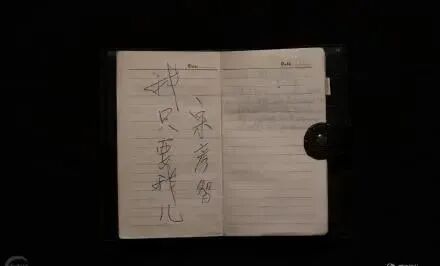 Date
Date
我只要我儿
宋彦智